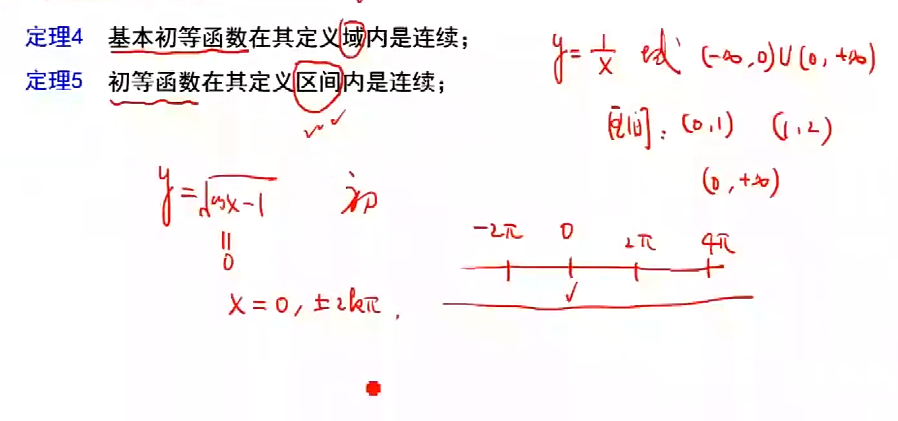 定理4 基本初等函数在其定义域内是连续；
定理5 初等函数在其定义区间内是连续；
y = 1/x 域 (-∞,0)∪(0,+∞)
区间：(0,1) (1,2)
(0,+∞)
y = √cosx-1 初
=
0
x = 0, ±2kπ,
-2π 0 2π 4π